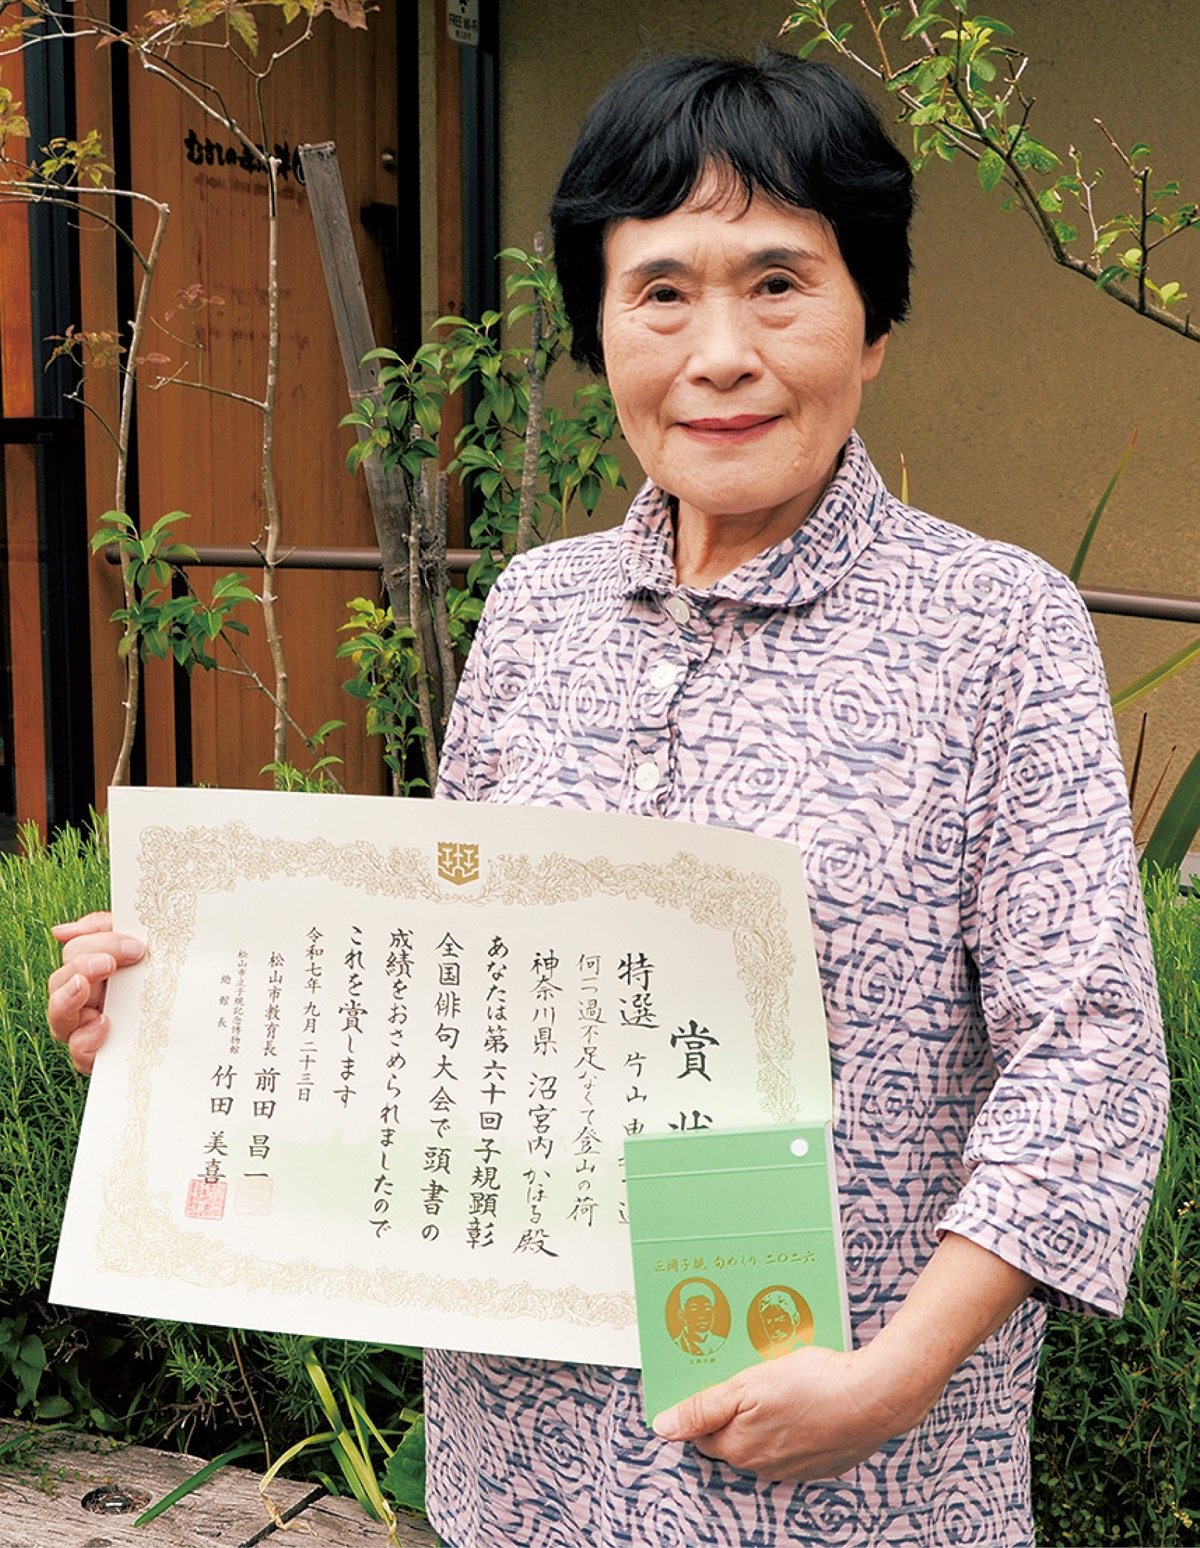 FREE Wi-Fi
賞状
特選 片山
何一つ過不足なくて登山の荷
神奈川県 沼宮内かほる殿
あなたは第六十回子規顕彰
全国俳句大会で頭書の
成績をおさめられましたので
これを賞します
令和七年 九月二十三日
松山市教育長 前田昌一
松山市立子規記念博物館
総館長 竹田美喜
正岡子規 句めくり 二〇二六
正岡子規